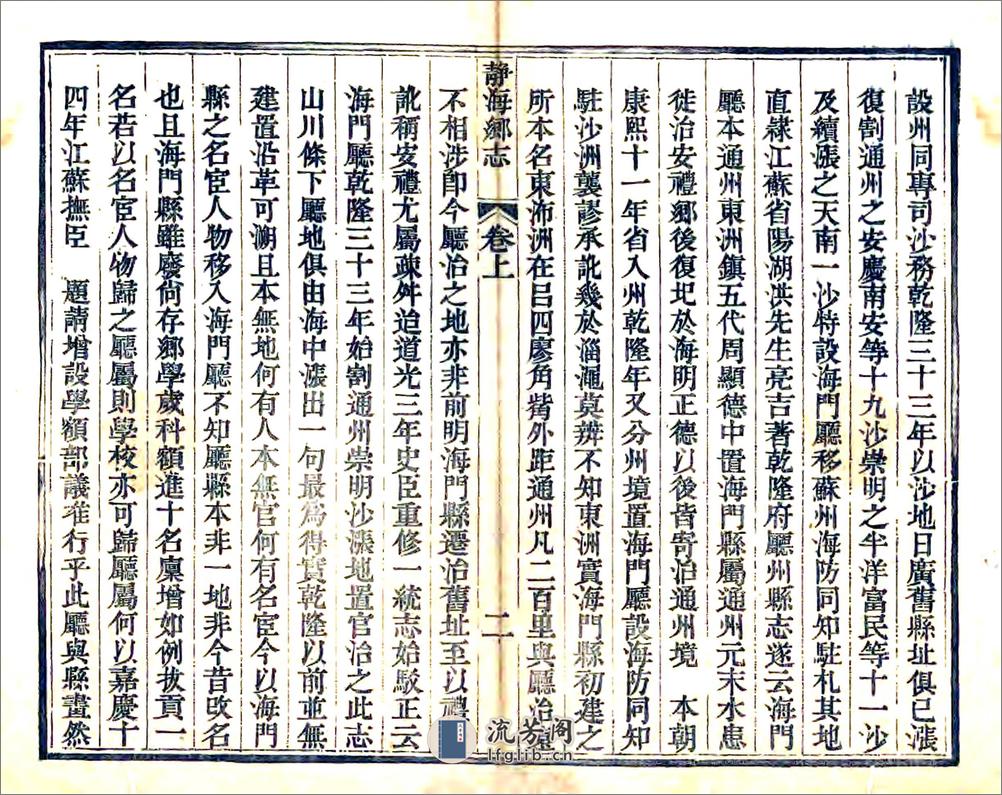 設州同專司沙務乾隆三十三年以沙地日廣舊縣址俱已漲
復割通州之安慶南安等十九沙崇明之半洋富民等十一沙
及續漲之天南一沙特設海門廳移蘇州海防同知駐札其地
直隷江蘇省陽湖洪先生亮吉著乾隆府廳州縣志遂云海門
廳本通州東洲鎮五代周顯德中置海門縣屬通州元末水患
徙治安禮鄉後復圯於海明正德以後皆寄治通州境　本朝
康熙十一年省入州乾隆年又分州境置海門廳設海防同知
駐沙洲襲謬承訛幾於淄澠莫辨不知東洲實海門縣初建之
所本名東沛洲在呂四廖角觜外距通州凡二百里與廳治
靜海鄉志　卷上　二
不相涉卽今廳治之地亦非前明海門縣遷治舊址至以禮
訛稱安禮尤屬疎舛迨道光三年史臣重修一統志始駁正云
海門廳乾隆三十三年始割通州崇明沙漲地置官治之此志
山川條下廳地俱由海中漲出一句最爲得實乾隆以前並無
建置沿革可溯且本無地何有人本無官何有名宦今以海門
縣之名宦人物移入海門廳不知廳縣本非一地非今昔改名
也且海門縣雖廢尙存鄉學歲科額進十名廩增如例拔貢一
名若以名宦人物歸之廳屬則學校亦可歸廳屬何以嘉慶十
四年江蘇撫臣　題請增設學額部議准行乎此廳與縣畫然
流芳閣
lfglib.cn